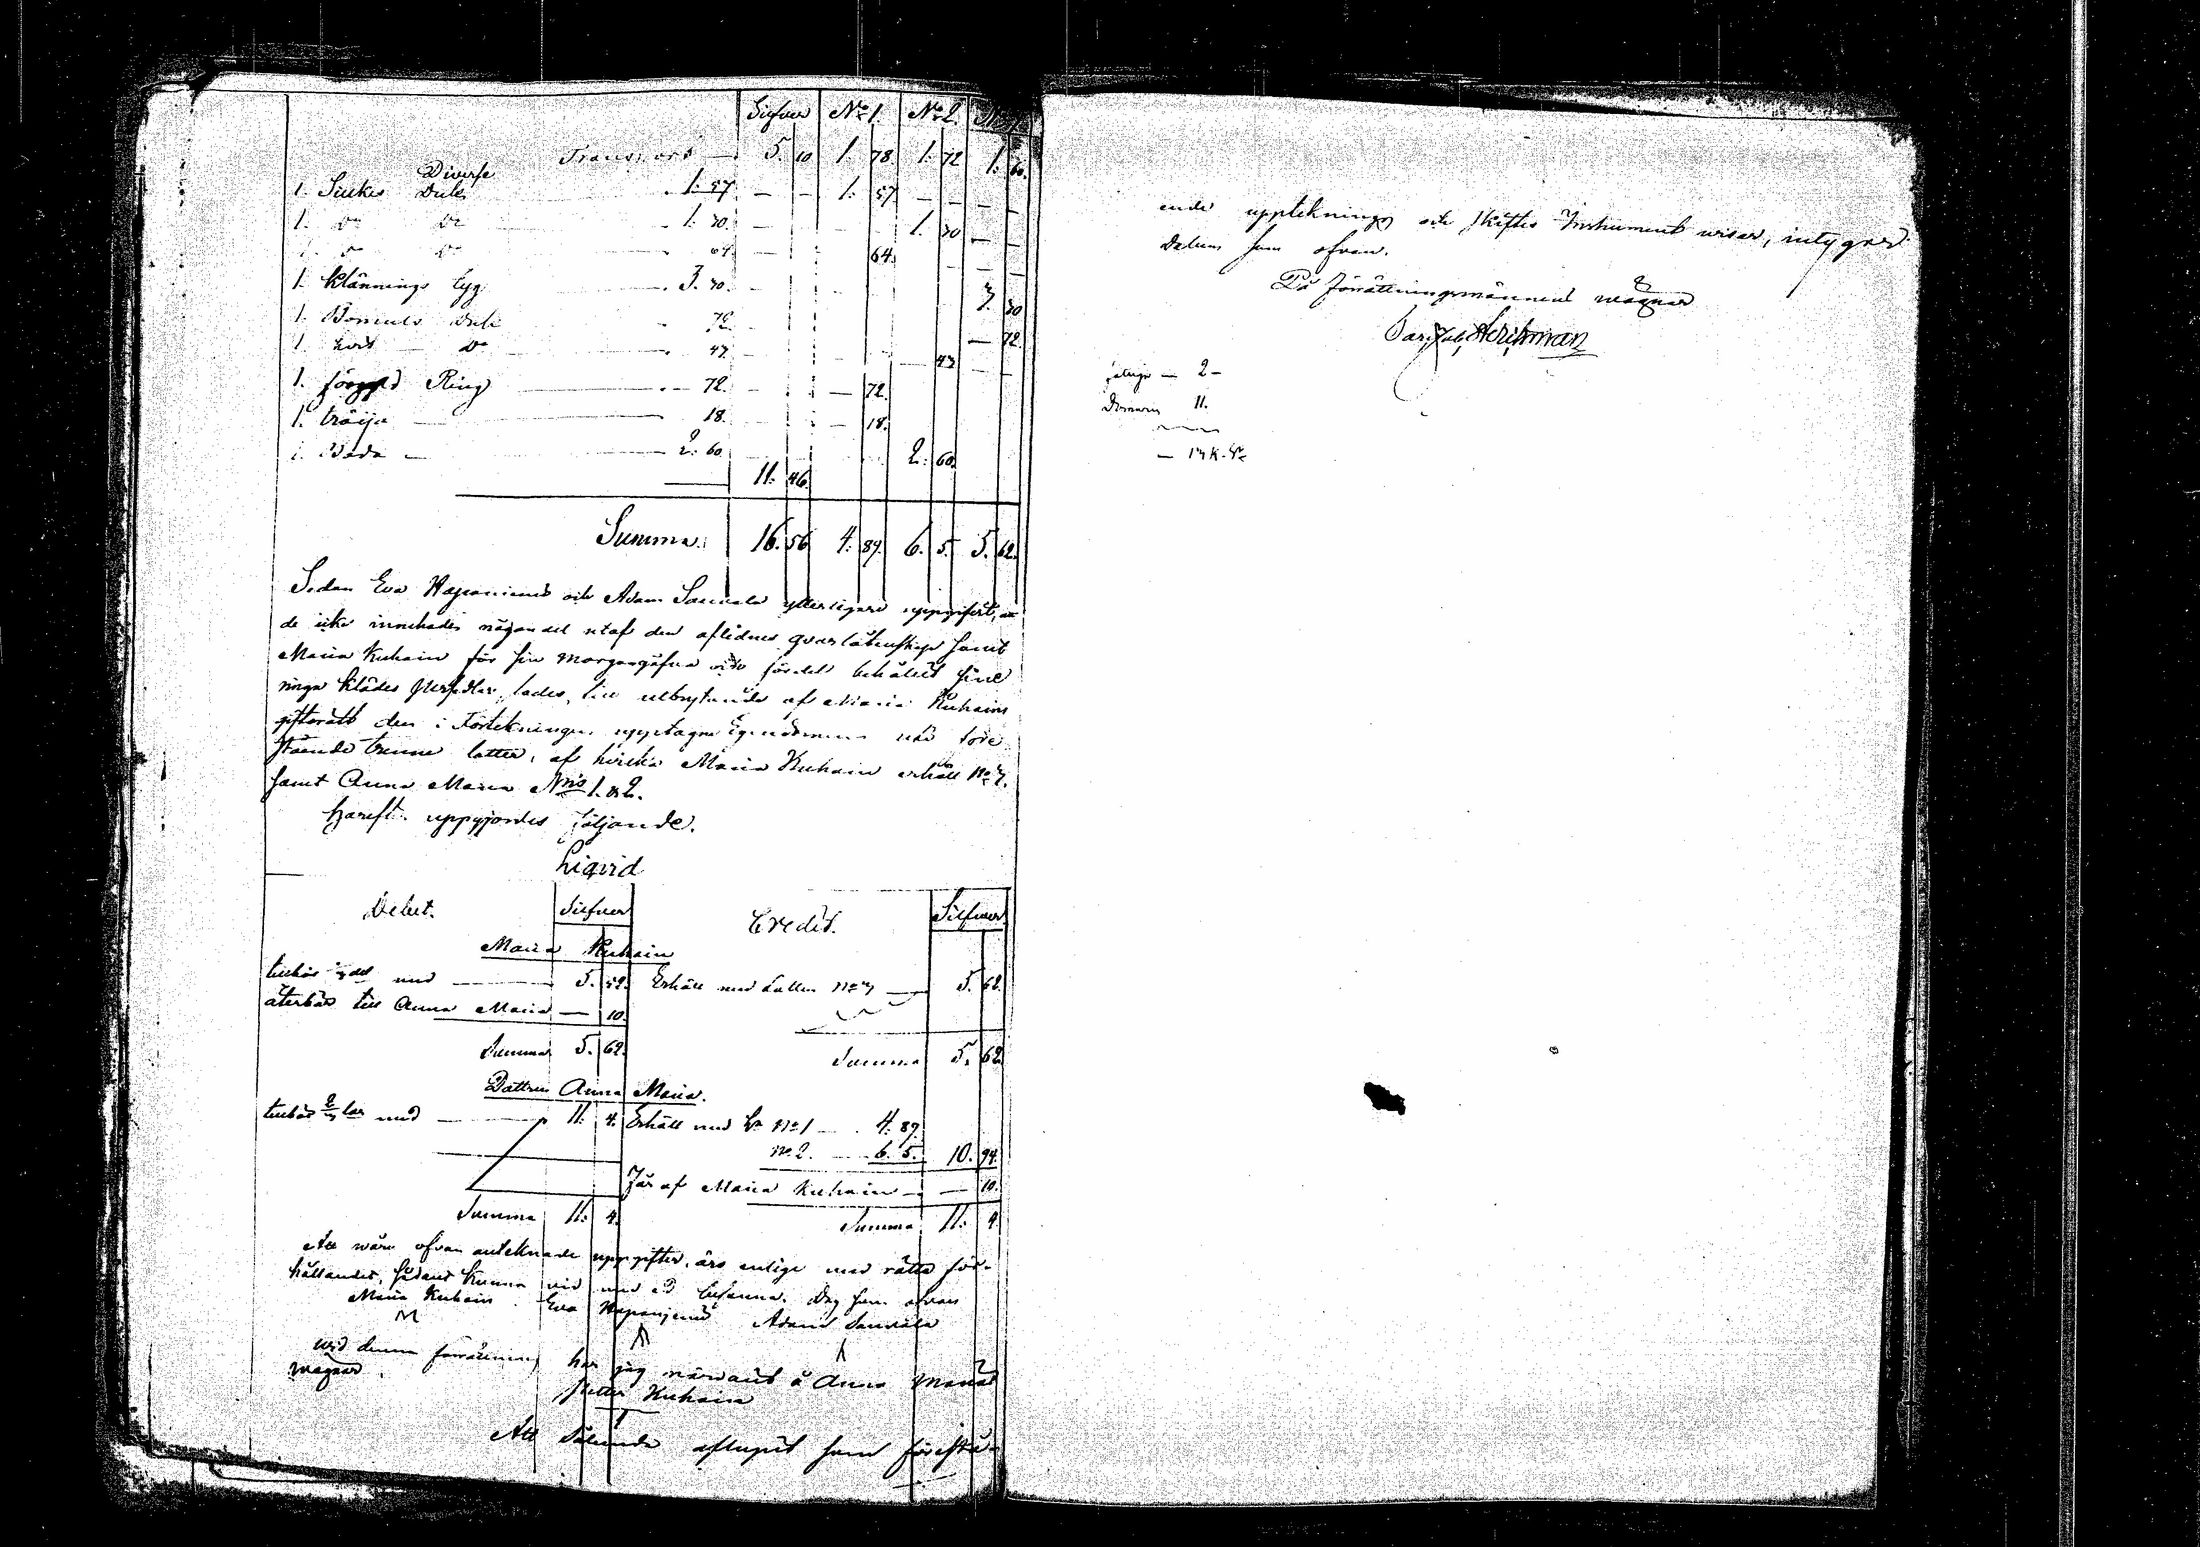 Silfver No 1. No 2. No 3.
Transport — 5. 10 1. 78. 1. 72 1. 60.
Diverse
1. Silkes Duk 1. 57 — — 1. 57 — — — —
1. Do Do 1. 30. — 1. 30 —
1. Do Do 64. — 64. — — —
1. Klännings tyg 3. 30. — 3. 30
1. Bomuls duk 72. — 72.
1. hvit Do 43 — 43
1. förgyld Ring 72. — — 72.
1. tröija 18. — 18.
1. 2. 60. 2. 60.
11. 46.
Summa. 16. 56 4. 89. 6. 5. 5. 62.
Sedan Eva Haponiemi och Adam Saukala ytterligare uppgifvit, att
de icke innehade någon del utaf den aflidnes qvarlåtenskap samt
Maria Kuhain för sin morgongåfva och fördel behållit sine
ringa klädes persedlar, lades, till utbrytande af Maria Kuhains
giftorätt den i Förtekningen upptagne Egendomen uti fore
stående trenne lotter, af hvilka Maria Kuhain erhöll No 3.
samt Anna Maria Nris 1. & 2.
Härefter uppgjordes följande.
Liqvid
Debet. Silfver Credit. Silfver
Maria Kuhain
tillkom 1/3 del med — 5. 52. Erhållt med Lotten No 3 — 5. 62.
återbär till Anna Maria — 10.
Summa 5. 62. Summa 5. 62
Dottren Anna Maria.
tillkom 2/3 lar med — 11. 4. Erhållt med Lr No 1 — 4. 89.
No 2. — 6. 5. 10. 94.
Får af Maria Kuhain — — 10.
Summa 11. 4. Summa 11. 4.
Att våre ofvan anteknade uppgifter, äro enlige med rätta för-
hållandet, sådant kunna vid med ed besanna. Dag som ofvan
Maria Kuhain Eva Haponiemi Adam Saukala
Wid denna förrättning har jag närvarit å Anna Marias
vägnar. Petter Kuhain
Att sålunda aflupit som förestå-
ende uppteknings och skiftes Instrument utvisar, intygar
Datum som ofvan.
På Förrättningsmännens vägnar
Åkerman
2 —
Domaren 11.
— 13 k. Sr